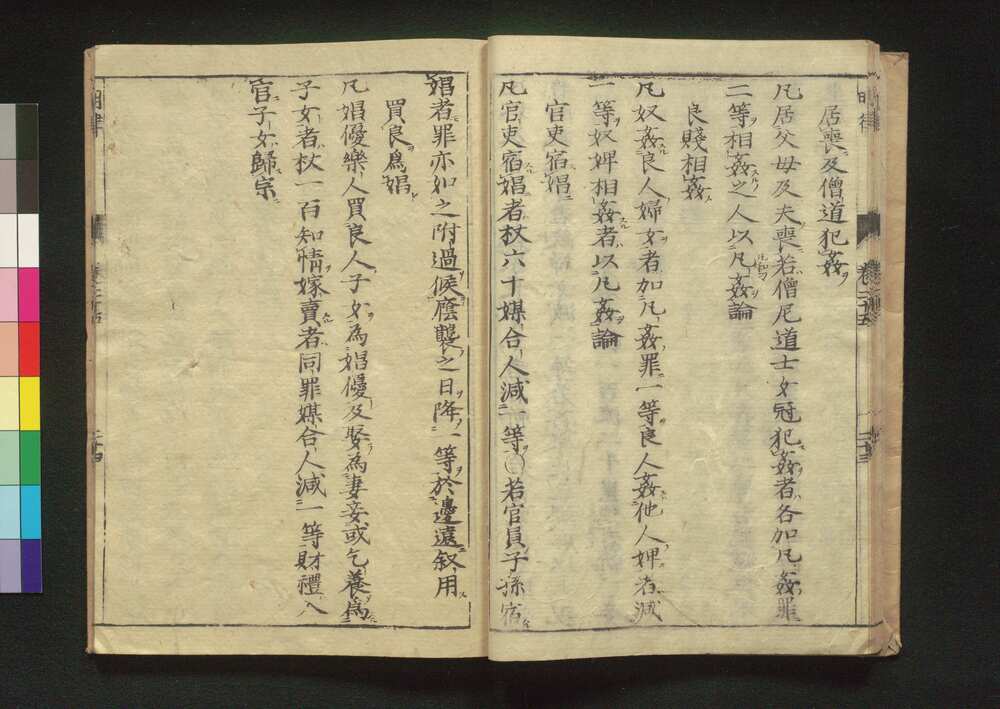 居喪及僧道犯姦
凡居父母及夫喪若僧尼道士女冠犯姦者各加凡姦罪
二等相姦之人以凡姦論
良賤相姦
凡奴姦良人婦女者加凡姦罪一等良人姦他人婢者減
一等奴婢相姦者以凡姦論
官吏宿娼
凡官吏宿娼者杖六十媒合人減一等〇若官員子孫宿
娼者罪亦如之附過候廕襲之日降一等於邊遠叙用
買良爲娼
凡娼優樂人買良人子女為娼優及娶為妻妾或乞養爲
子女者杖一百知情嫁賣者同罪媒合人減一等財禮入
官子女歸宗
明律